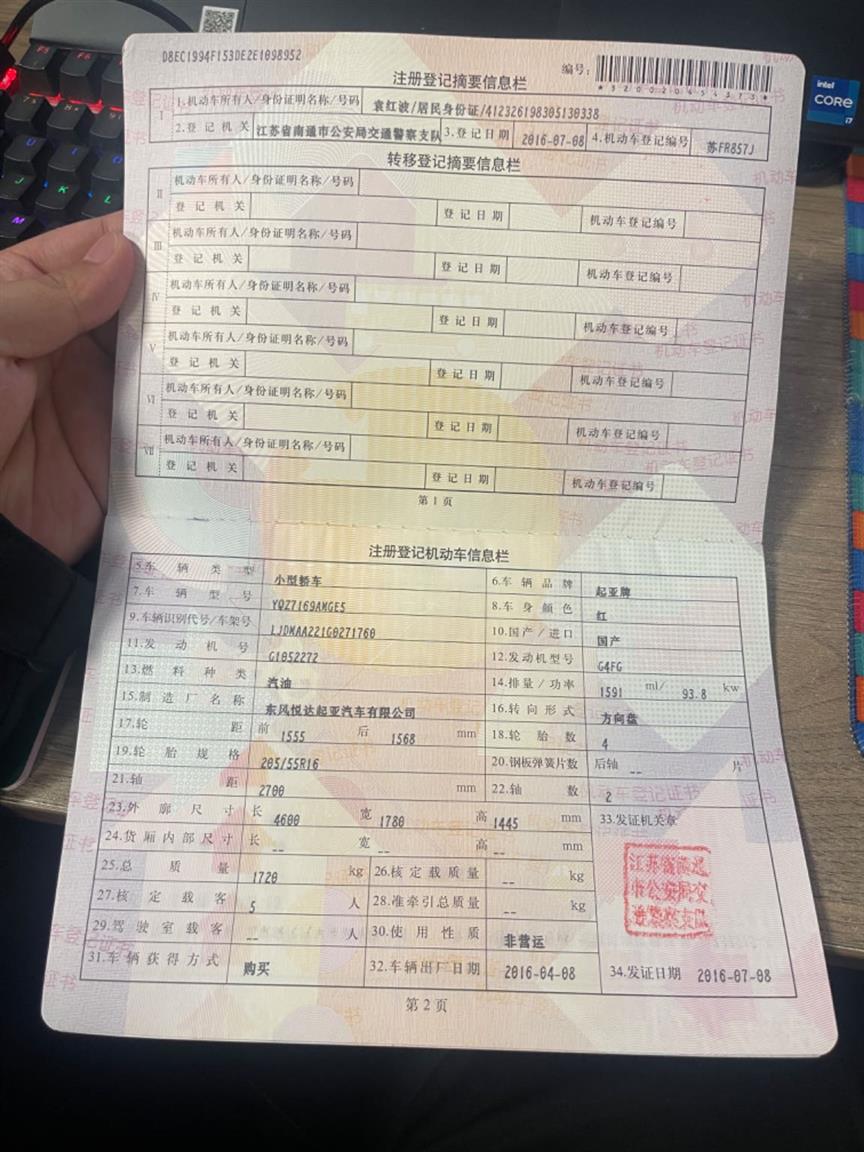 D8EC1994F153DE2E1098952
编号:
注册登记摘要信息栏
I 1.机动车所有人/身份证明名称/号码 袁红波/居民身份证/412326198305130338
2.登记机关 江苏省南通市公安局交通警察支队 3.登记日期 2016-07-08 4.机动车登记编号 苏FR857J
转移登记摘要信息栏
II 机动车所有人/身份证明名称/号码
登记机关 登记日期 机动车登记编号
III 机动车所有人/身份证明名称/号码
登记机关 登记日期 机动车登记编号
IV 机动车所有人/身份证明名称/号码
登记机关 登记日期 机动车登记编号
V 机动车所有人/身份证明名称/号码
登记机关 登记日期 机动车登记编号
VI 机动车所有人/身份证明名称/号码
登记机关 登记日期 机动车登记编号
VII 机动车所有人/身份证明名称/号码
登记机关 登记日期 机动车登记编号
第1页
注册登记机动车信息栏
5.车辆类型 小型轿车 6.车辆品牌 起亚牌
7.车辆型号 YQZ7169AMGE5 8.车身颜色 红
9.车辆识别代号/车架号 LJDMAA221G0271760 10.国产/进口 国产
11.发动机号 G1052272 12.发动机型号 G4FG
13.燃料种类 汽油 14.排量/功率 1591 ml/ 93.8 kw
15.制造厂名称 东风悦达起亚汽车有限公司 16.转向形式 方向盘
17.轮距 前 1555 后 1568 mm 18.轮胎数 4
19.轮胎规格 205/55R16 20.钢板弹簧片数 后轴 -- 片
21.轴距 2700 mm 22.轴数 2
23.外廓尺寸 长 4600 宽 1780 高 1445 mm 33.发证机关章
24.货厢内部尺寸 长 -- 宽 -- 高 -- mm
25.总质量 1720 kg 26.核定载质量 -- kg
27.核定载客 5 人 28.准牵引总质量 -- kg
29.驾驶室载客 -- 人 30.使用性质 非营运
31.车辆获得方式 购买 32.车辆出厂日期 2016-04-08 34.发证日期 2016-07-08
江苏省南通
市公安局交
通警察支队
第2页
intel
CORE
i7